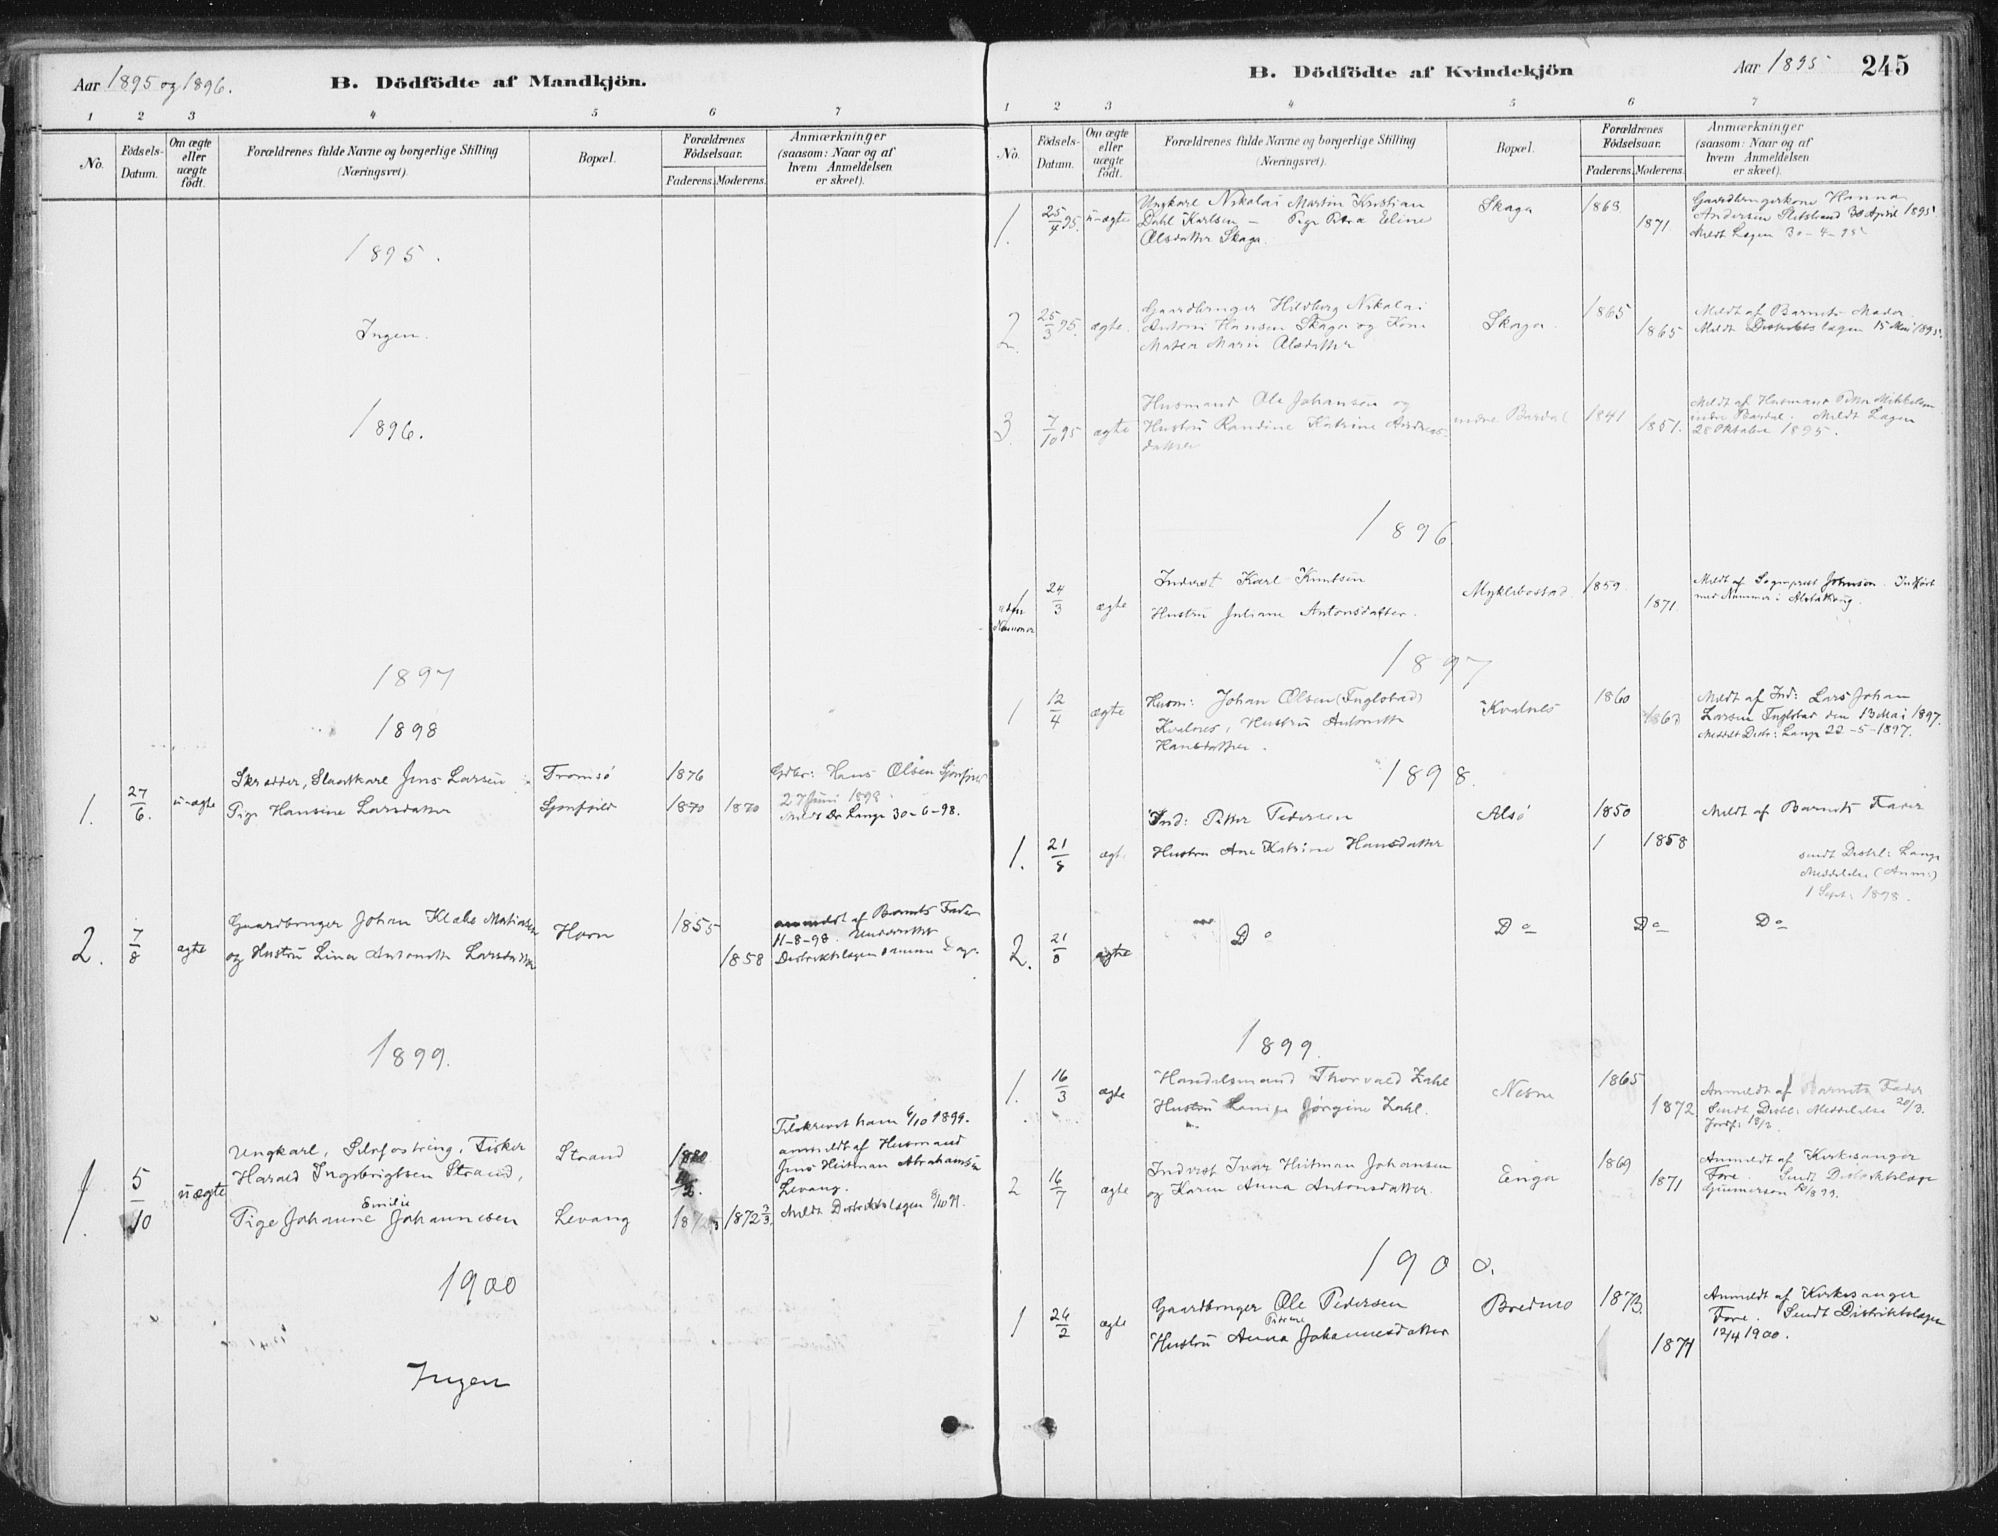 Aar 1895 og 1896.
B. Dödfödte af Mandkjön.
1 2 3 4 5 6 7
No.
Födsels-Datum.
Om ægte eller uægte født.
Forældrenes fulde Navne og borgerlige Stilling (Næringsvei).
Bopæl.
Forældrenes Födselsaar.
Faderens. Moderens.
Anmærkninger (saasom: Naar og af hvem Anmeldelsen er skeet).
1895.
Ingen.
1896.
1897
1898
Skrædder, Slaatkarl Jens Larsen Tromsø 1876 Gdbr: Hans Olsen
1. 27/6. u-ægte Pige Hansine Larsdatter Sjonfjeld 1870 1870 27 Juni 1898
Meldt Dr Lange 30-6-98.
Gaardbruger Johan Klæbo 1855 anmeldt af Barnets Fader
2. 7/8 ægte og Hustru Lina Antonette Larsdatter Havn 1858 11-8-98. Underrettet
Distriktslægen samme Dag.
1899.
Tilskrevet ham 6/10 1899.
Ungkarl, Fisker Strand 1880 anmeldt af Husmand
Harald Ingebrigtsen Strand, Jens Heitman Abrahamsen
1. 5/10 uægte Levang.
Emilie
Pige Johanne Johannesen Levang 1872 Meldt Distriktslægen
1900
Ingen
B. Dödfödte af Kvindekjön
Aar 1895
245
1 2 3 4 5 6 7
No.
Födsels-Datum.
Om ægte eller uægte födt.
Forældrenes fulde Navne og borgerlige Stilling (Næringsvei).
Bopæl.
Forældrenes Födselsaar.
Faderens. Moderens.
Anmærkninger (saasom: Naar og af hvem Anmeldelsen er skeet).
1. 25/4 95. u-ægte Ungkarl Nikolai Martin Kristian Skaga 1863 Gaardbrugerkone Hanna
Dahl Karlsen – Pige Petra Eline 1871 Andersen 30 April 1895.
Olsdatter Skaga. Meldt Lægen 30-4-95
2. 25/3 95. ægte. Gaardbruger Hildberg Nikolai Skaga. 1865 Meldt af Barnets Moder.
Antoni Hansen Skaga og Kone 1865 Meldt Distriktslægen 15 Mai 1895.
Matea Marie Olsdatter
3. 7/10 95 ægte Husmand Ole Johansen og indre Bardal 1841 Meldt af Husmand Petter Mikkelsen
Hustru Randine Katrine Andreas- 1851. indre Bardal. Meldt Lægen
datter 28 Oktober 1895.
1896.
1 uden Nummer 24/3 ægte Inderst Karl Knutsen Myklebostad 1859 Meldt af Sogneprest Johnson. Indført
Hustru Juliane Antonsdatter. 1871 med Nummer i Alstahoug.
1897
1 12/4 ægte Husm: Johan Olsen (Fuglstad) Kvalnes 1860 Meldt af Ind: Lars Johan
Kvalnes, Hustru Antonette Larsen Fuglstad den 13 Mai 1897.
Hansdatter. Meddelt Distr: Lange 22-5-1897.
1898.
Ind: Petter Pedersen Alsø 1850 Meldt af Barnets Fader
1. 21/8 ægte Hustru Ane Katrine Hansdatter 1858
sendt Distrl: Lange
Meddelelse (Anm:)
1 Sept: 1898.
2. 21/8 ægte Do Do Do Do
1899.
1. 16/3 ægte Handelsmand Thorvald Zahl Nesna 1865 Anmeldt af Barnets Fader
Hustru Jørgine Zahl. 1872 Sendt Distl: Meddelelse 20/3.
2 16/7 ægte Indrest Ivar Heitman Johansen Enga 1869 Anmeldt af Kirkesanger
og Karen Anna Antonsdatter. 1871 Fore. Sendt Distriktslæge
Gunnerson
1900.
1 24/2 ægte Gaardbruger Ole Pedersen Bredmo 1873. Anmeldt af Kirkesanger
Petrine
Hustru Anna Johannesdatter 1874 Fore. Sendt Distriktslægen
12/4 1900.